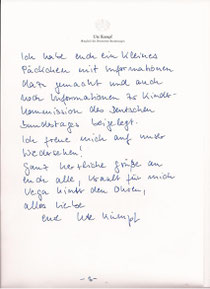 Ute Kumpf
Mitglied des Deutschen Bundestages
Ich habe euch ein kleines
Päckchen mit Informationen
dazu gemacht und auch
noch Informationen zur Kinder-
kommission des Deutschen
Bundestages beigelegt.
Ich freue mich auf unser
Wiedersehen!
Ganz herzliche Grüße an
euch alle, krault für mich
Vega hinter den Ohren,
alles Liebe
eure Ute Kumpf